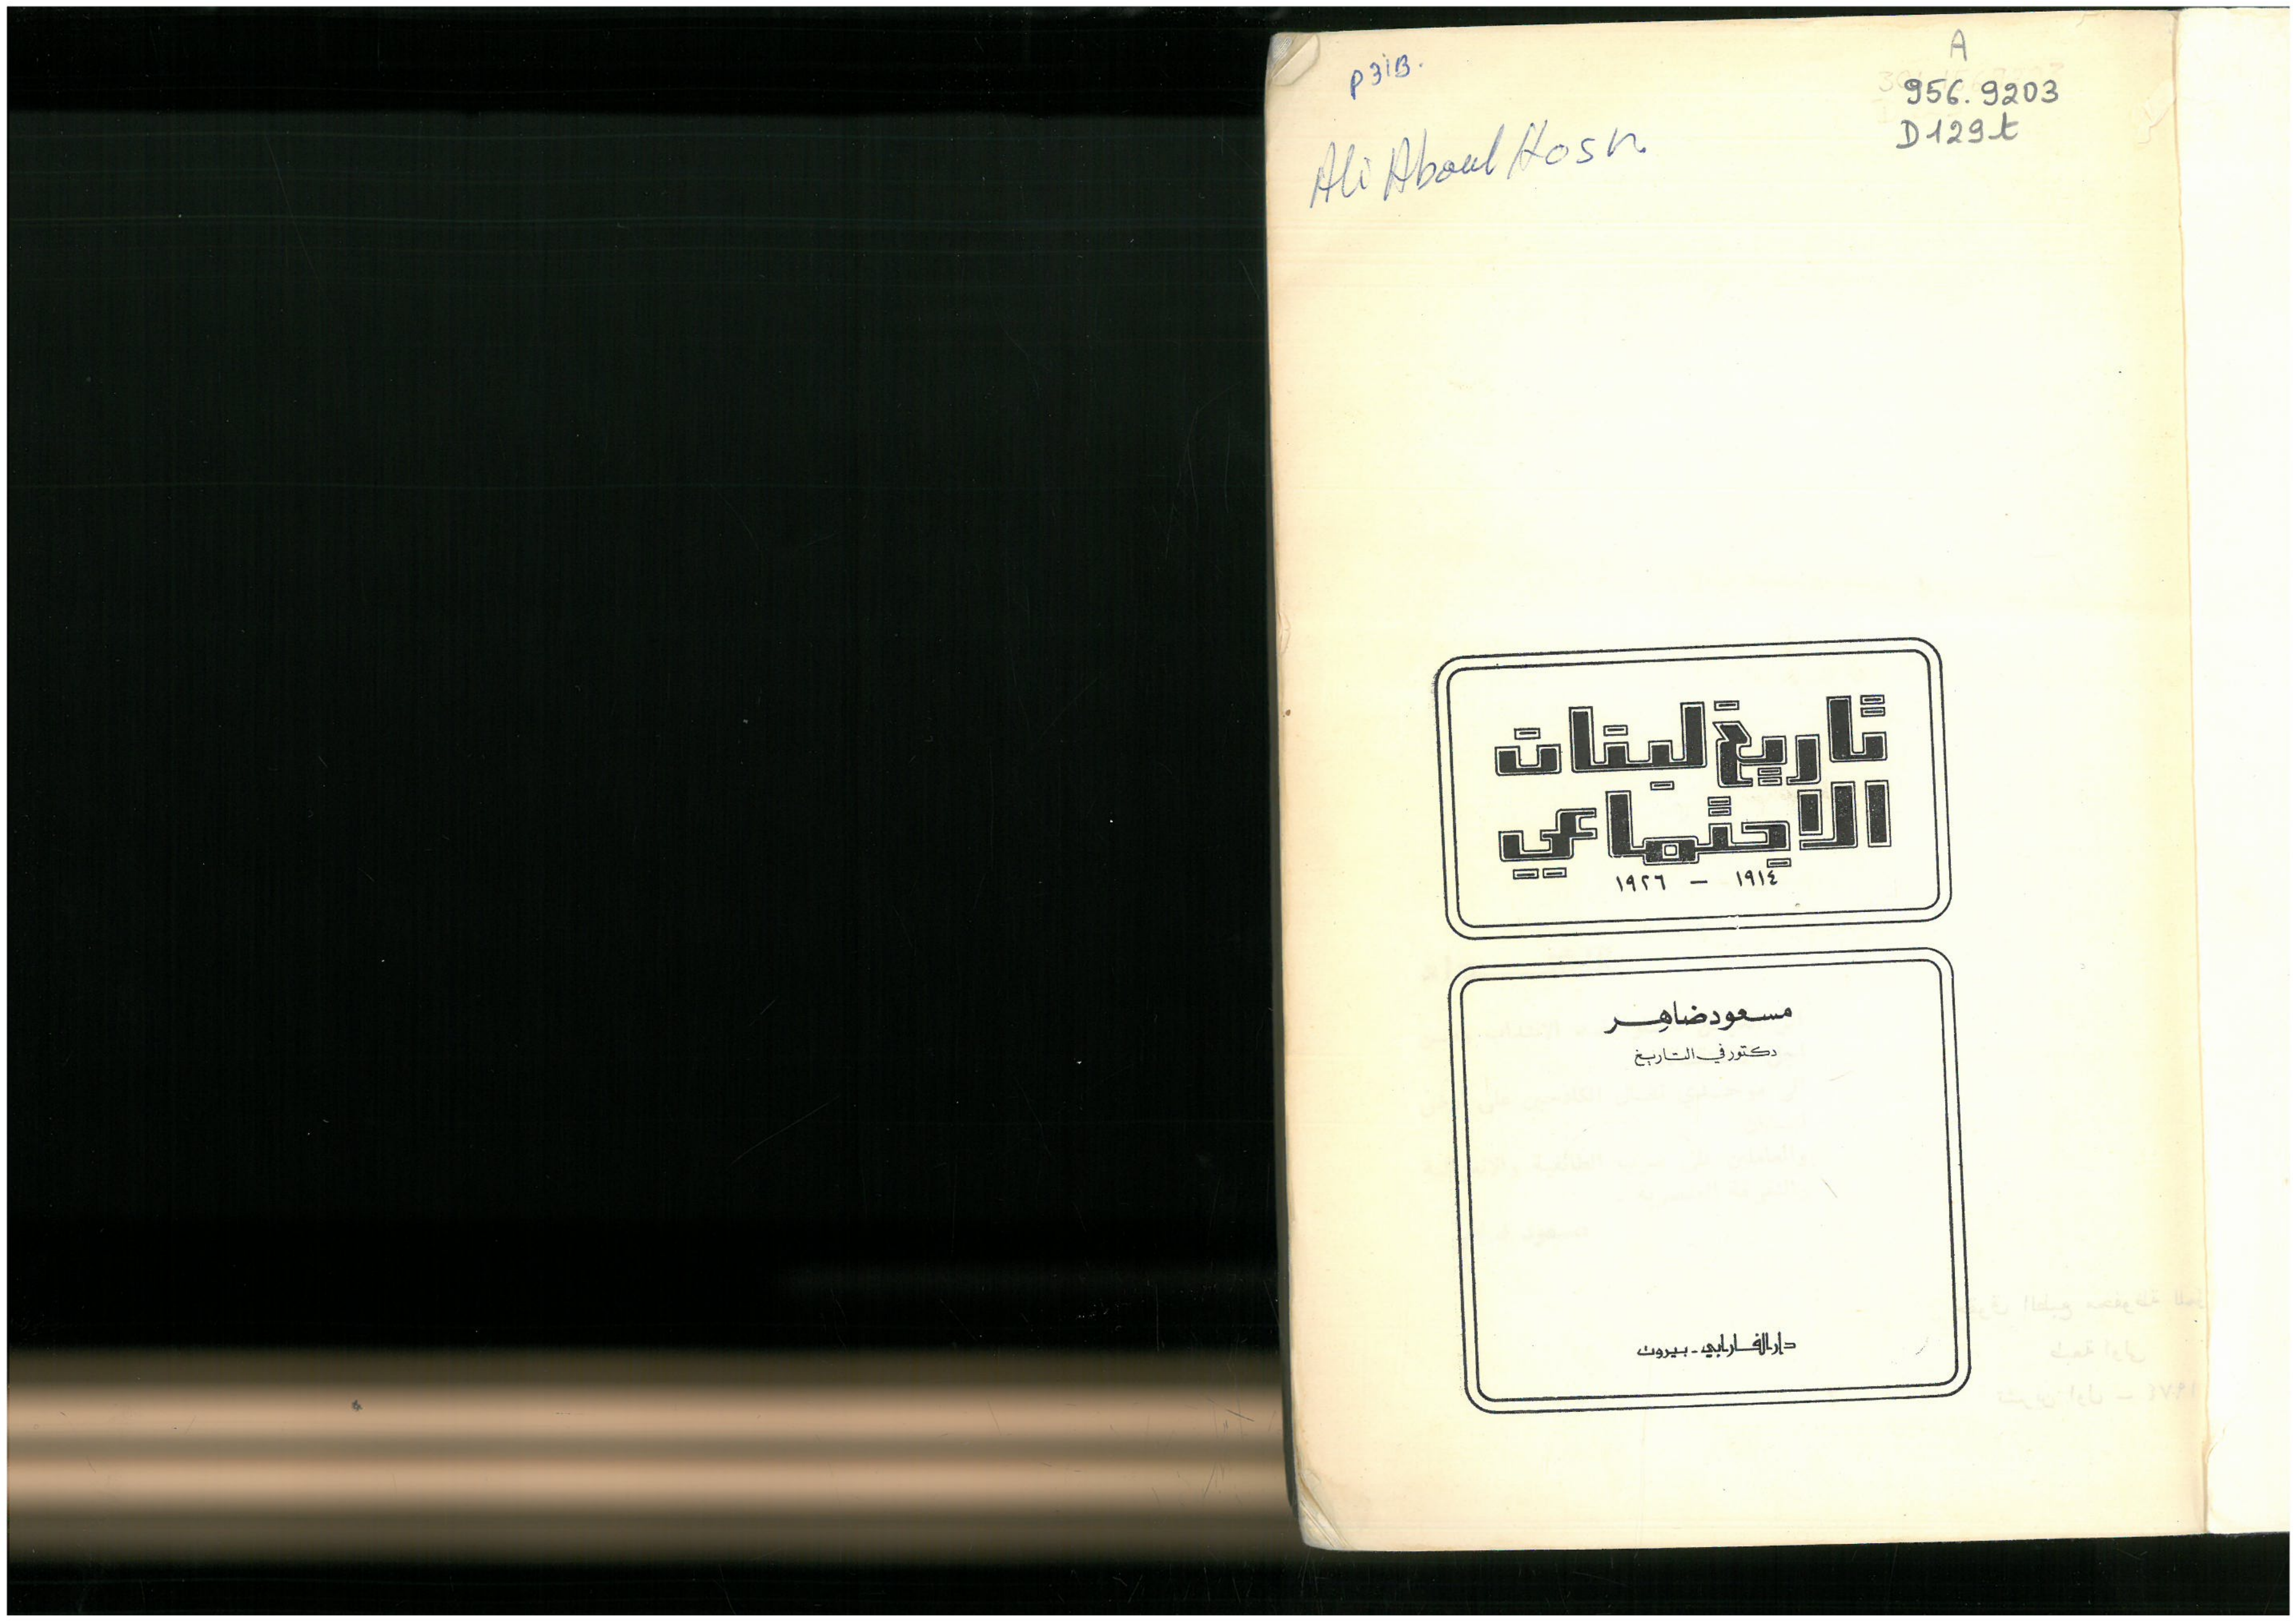 p31B.
A
956.9203
D129t
Ali Aboul Hosn
تاريخ لبنان
الاجتماعي
١٩١٤ - ١٩٢٦
مسعود ضاهر
دكتور في التاريخ
دار الفارابي - بيروت